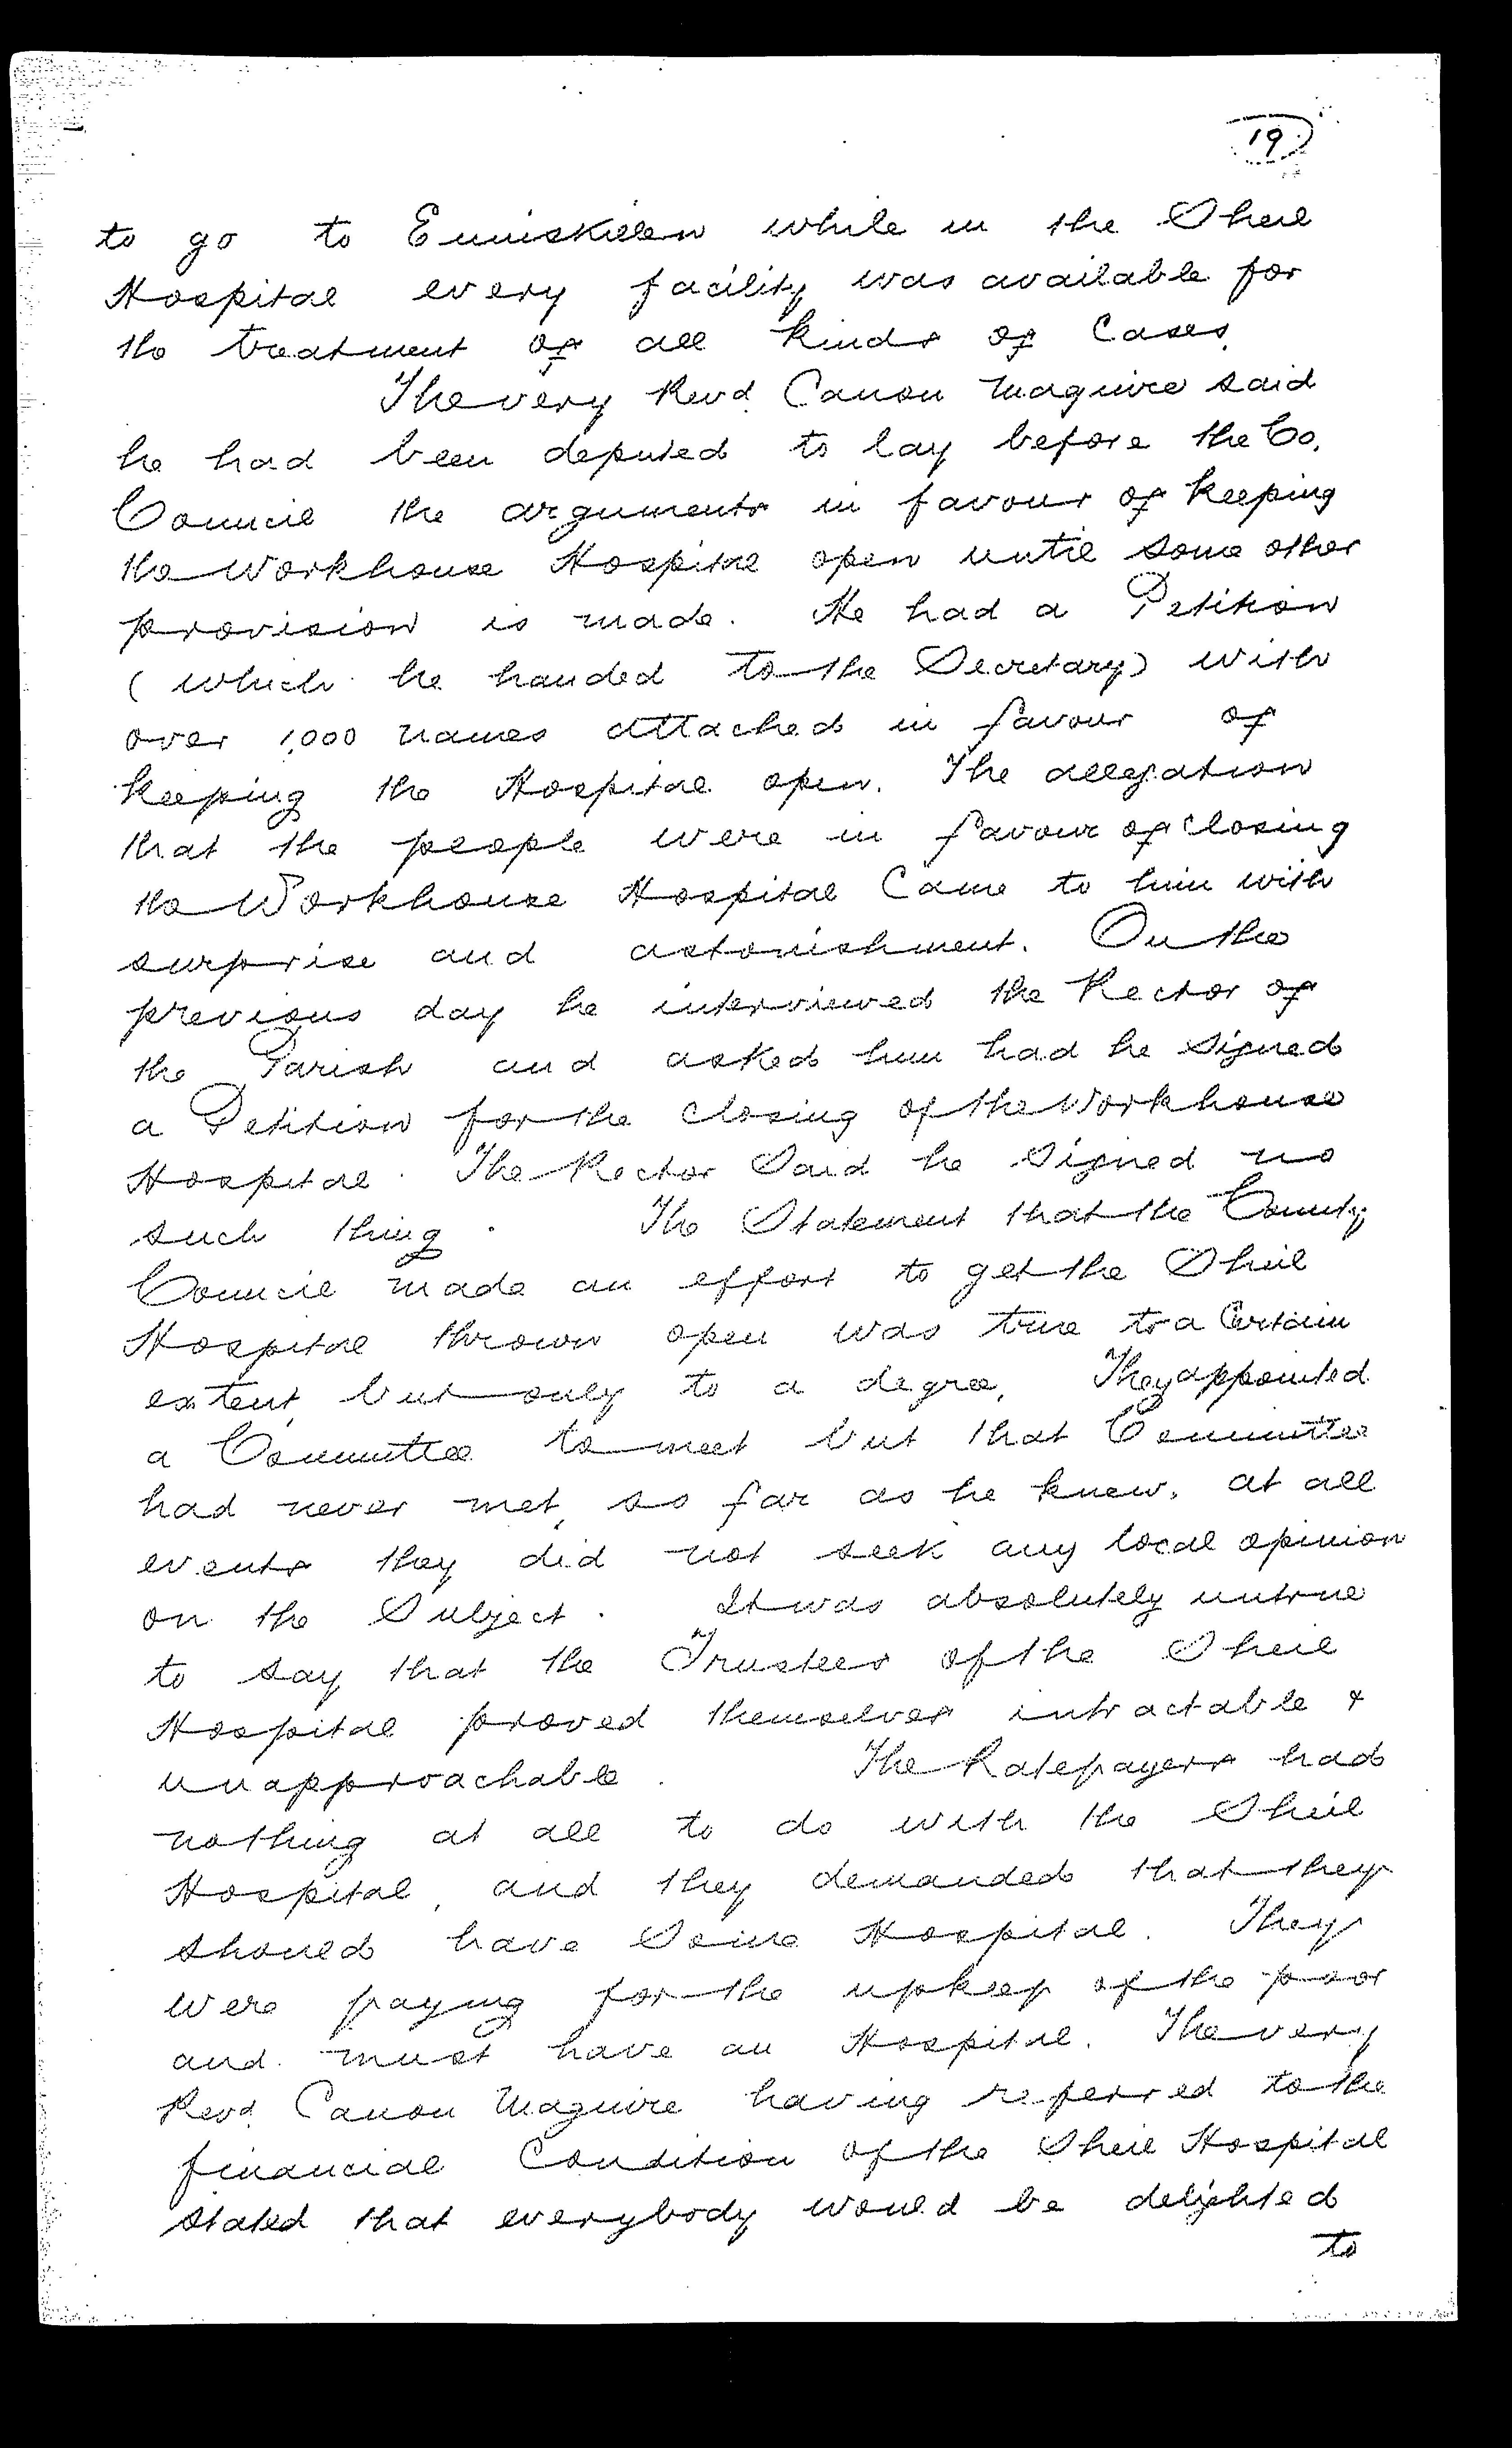 19
to go to Enniskillen while in the Sheil
Hospital every facility was available for
the treatment of all kinds of Cases.
The very Revd. Canon Maguire said
he had been deputed to lay before the Co.
Council the arguments in favour of keeping
the Workhouse Hospital open until some other
provision is made. He had a Petition
(which he handed to the Secretary) with
over 1,000 names attached in favour of
keeping the Hospital open. The allegation
that the people were in favour of closing
the Workhouse Hospital Came to him with
surprise and astonishment. On the
previous day he interviewed the Rector of
the Parish and asked him had he signed
a Petition for the closing of the Workhouse
Hospital. The Rector Said he signed no
such thing. The Statement that the County
Council made an effort to get the Sheil
Hospital thrown open was true to a Certain
extent, but only to a degree. They appointed
a Committee to meet but that Committee
had never met, so far as he knew, at all
events they did not seek any local opinion
on the Subject. It was absolutely untrue
to say that the Trustees of the Sheil
Hospital proved themselves intractable &
unapproachable. The Ratepayers had
nothing at all to do with the Sheil
Hospital, and they demanded that they
should have Some Hospital. They
were paying for the upkeep of the poor
and must have an Hospital. The very
Revd. Canon Maguire having referred to the
financial Condition of the Sheil Hospital
stated that everybody would be delighted
to